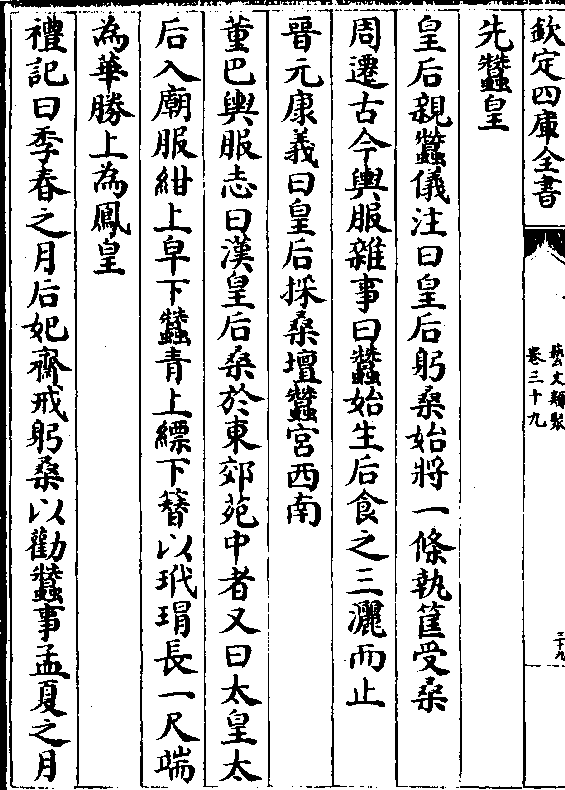 欽定四庫全書
藝文類聚
卷三十九
三十九
先蠶皇
皇后親蠶儀注曰皇后躬桑始將一條執筐受桑
周遷古今輿服雜事曰蠶始生后食之三灑而止
晉元康義曰皇后採桑壇蠶宮西南
董巴輿服志曰漢皇后桑於東郊苑中者又曰太皇太
后入廟服紺上皁下蠶青上縹下簪以玳瑁長一尺端
為華勝上為鳳皇
禮記曰季春之月后妃齋戒躬桑以勸蠶事孟夏之月